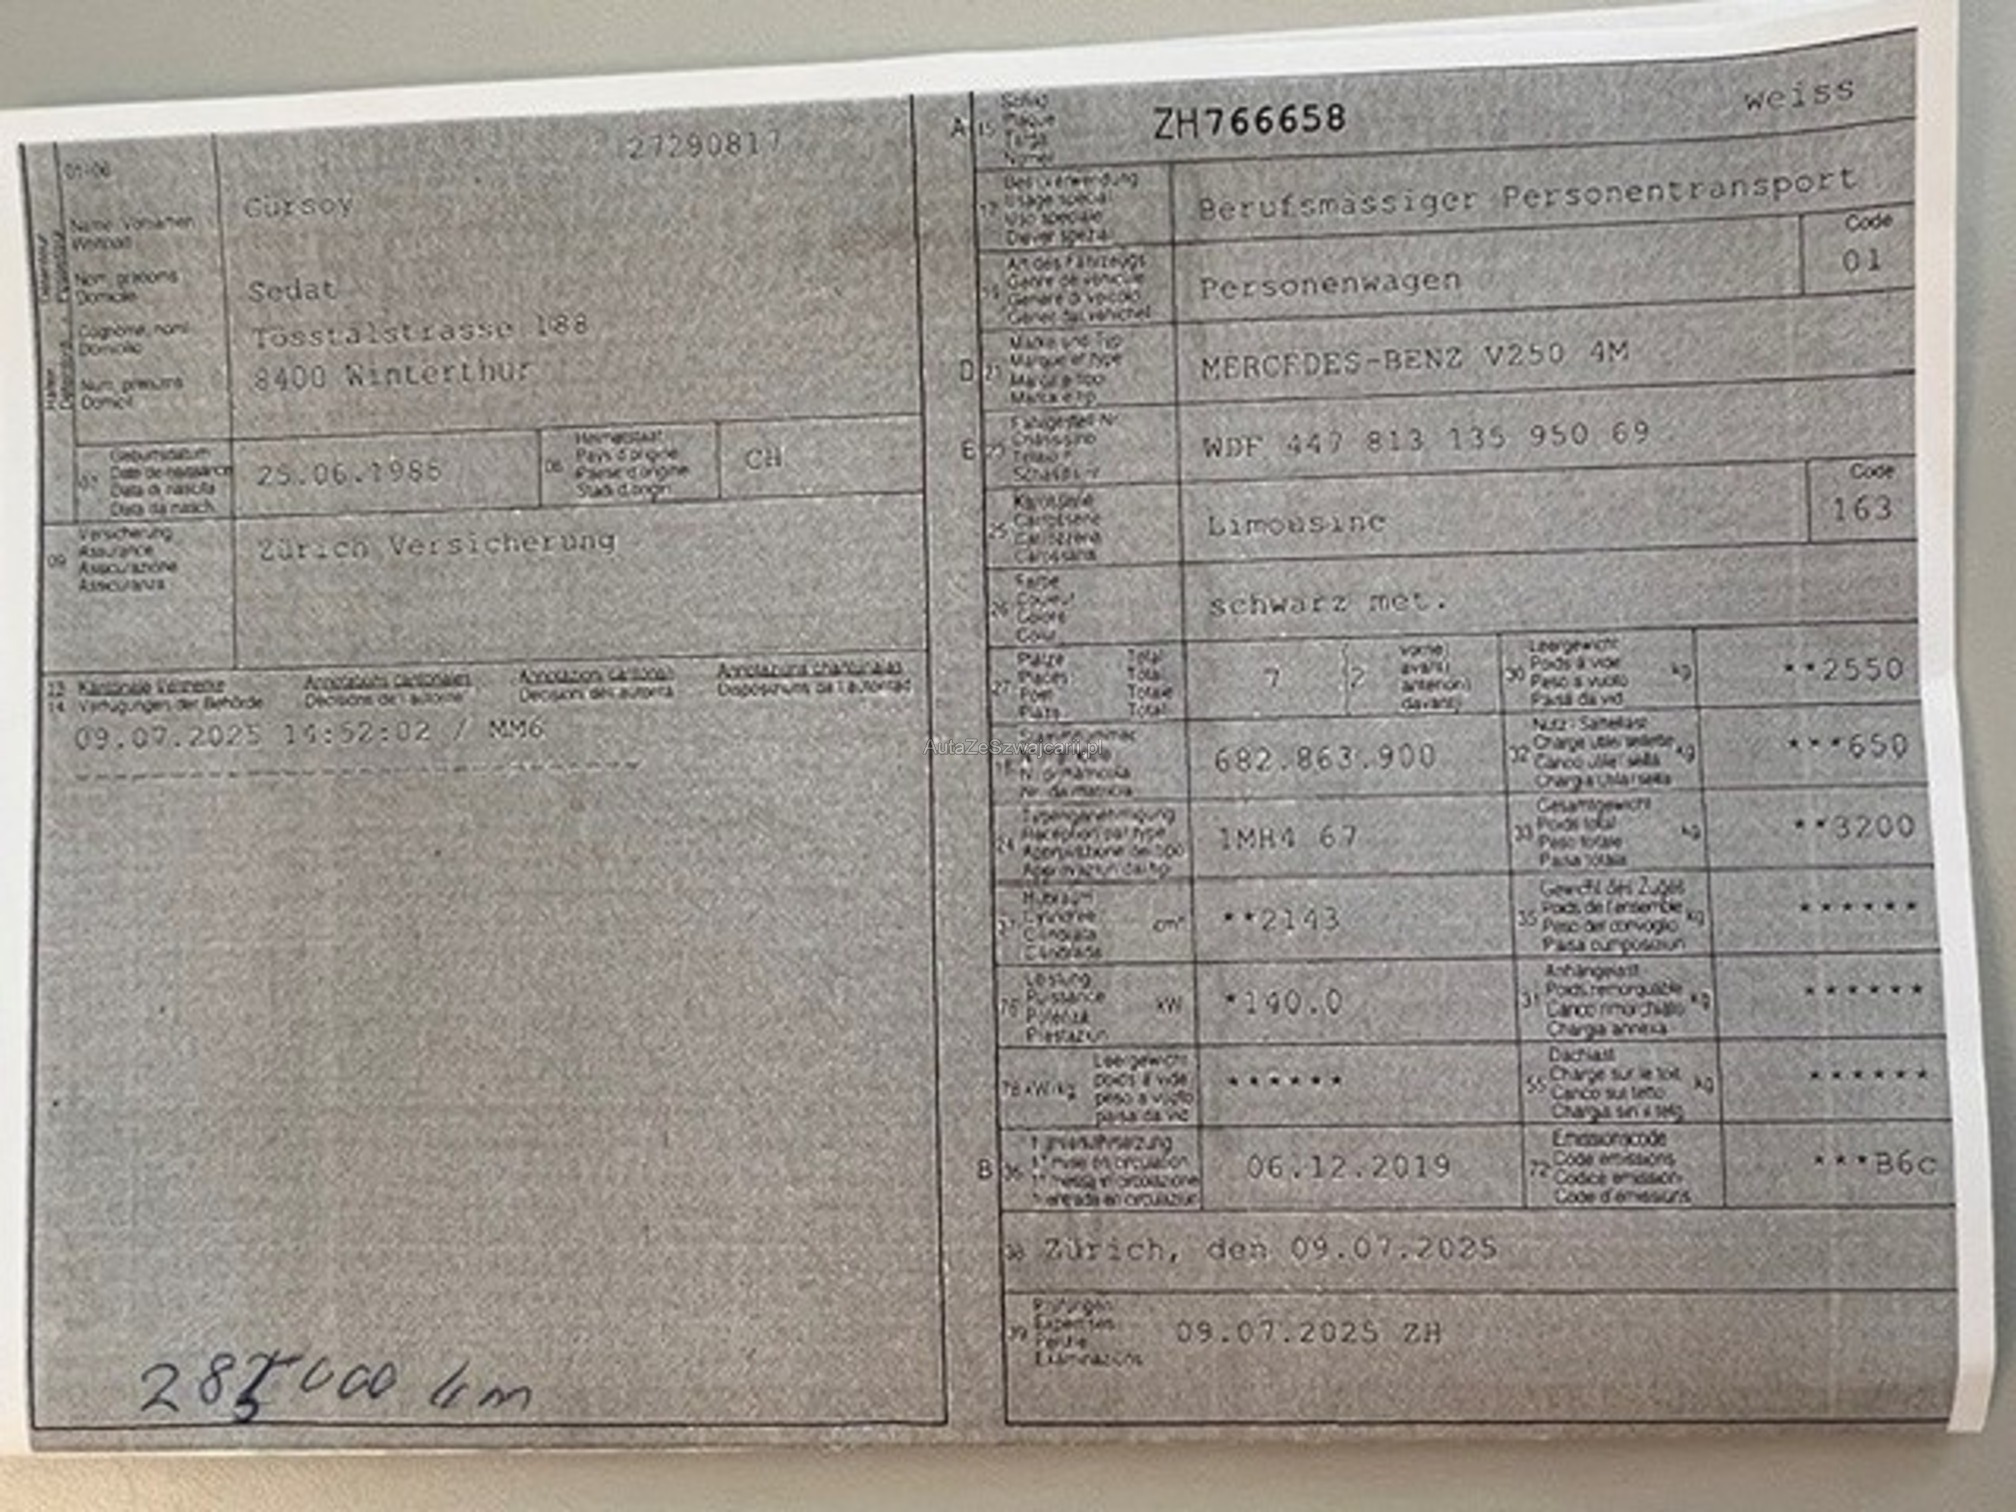 27290817
01-06
Name, Vornamen
Wohnort
Nom, prénoms
Domicile
Cognome, nomi
Domicilio
Num, prenums
Domicil
Gürsoy
Sedat
Tösstalstrasse 188
8400 Winterthur
07
Geburtsdatum
Date de naissance
Data di nascita
Data da nasch.
25.06.1986
08
Heimatstaat
Pays d'origine
Paese d'origine
Stadi d'origin
CH
09
Versicherung
Assurance
Assicurazione
Assicuranza
Zürich Versicherung
13 Kantonale Vermerke
14 Verfügungen der Behörde
Annotations cantonales
Décisions de l'autorité
Annotazioni cantonali
Decisioni dell'autorità
Annotaziuns chantunalas
Disposiziuns da l'autoritad
09.07.2025 14:52:02 / MM6
285000 km
A 15
Schild
Plaque
Targa
Numer
ZH766658
weiss
17
Bes. Verwendung
Usage spécial
Uso speciale
Diever spezial
Berufsmässiger Personentransport
19
Art des Fahrzeugs
Genre de véhicule
Genere di veicolo
Gener dal vehichel
Personenwagen
Code
01
D 21
Marke und Typ
Marque et type
Marca e tipo
Marca e tip
MERCEDES-BENZ V250 4M
E 23
Fahrgestell-Nr.
Châssis no
Telaio n.
Schassis nr.
WDF 447 813 135 950 69
25
Karosserie
Carrosserie
Carrozzeria
Carossaria
Limousine
Code
163
26
Farbe
Couleur
Colore
Colur
schwarz met.
27
Plätze Total
Places Total
Posti Totale
Plazs Total
7
(2
vorne)
avant)
anteriori)
davant)
30
Leergewicht
Poids à vide
Peso a vuoto
Paisa da vid
kg
**2550
18
Stammnummer
N. di matricola
Nr. da matricla
682.863.900
32
Nutz-/Sattellast
Charge utile/sellette
Carico utile/sella
Chargia utila/sella
kg
***650
24
Typengenehmigung
Réception par type
Approvazione del tipo
Approvaziun dal tip
1MH4 67
33
Gesamtgewicht
Poids total
Peso totale
Paisa totala
kg
**3200
37
Hubraum
Cylindrée
Cilindrata
Cilindrada
cm³
**2143
35
Gewicht des Zuges
Poids de l'ensemble
Peso del convoglio
Paisa cumposiziun
kg
******
76
Leistung
Puissance
Potenza
Prestaziun
kW
*140.0
31
Anhängelast
Poids remorquable
Carico rimorchiato
Chargia annexa
kg
******
78 kW/kg
Leergewicht
poids à vide
peso a vuoto
paisa da vid
******
55
Dachlast
Charge sur le toit
Carico sul tetto
Chargia sin il tetg
kg
******
B 36
1. Inverkehrsetzung
1re mise en circulation
1a messa in circolazione
1. entrada en circulaziun
06.12.2019
72
Emissionscode
Code émissions
Codice emissioni
Code d'emissiuns
***B6c
38 Zürich, den 09.07.2025
39
Prüfungen
Expertises
Perizie
Examinaziuns
09.07.2025 ZH
AutaZeSzwajcarii.pl